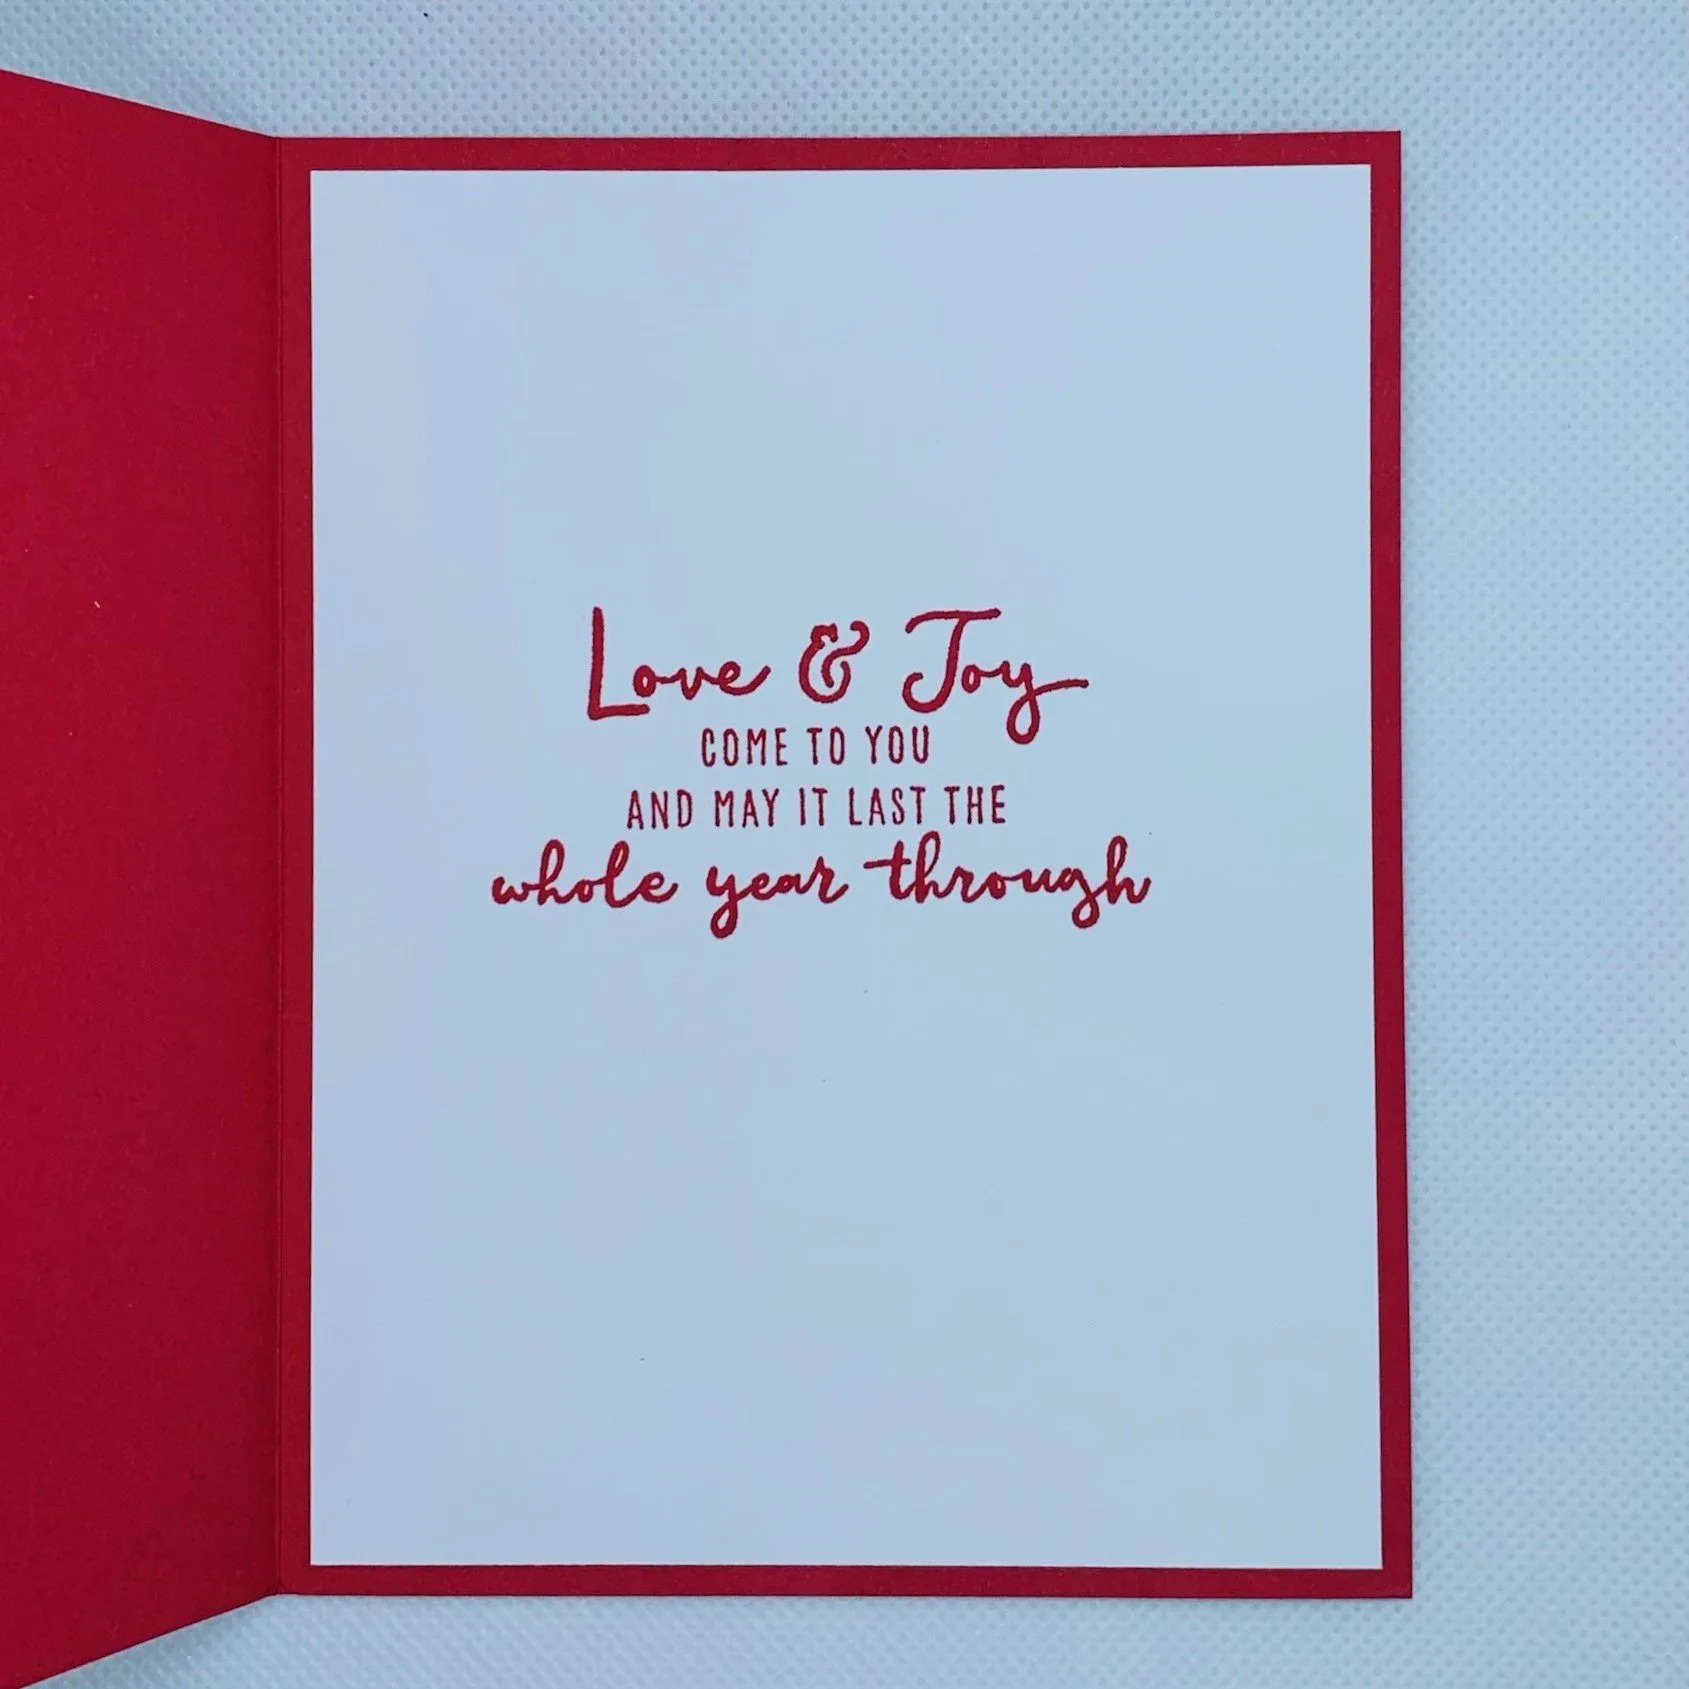 Love & Joy
COME TO YOU
AND MAY IT LAST THE
whole year through